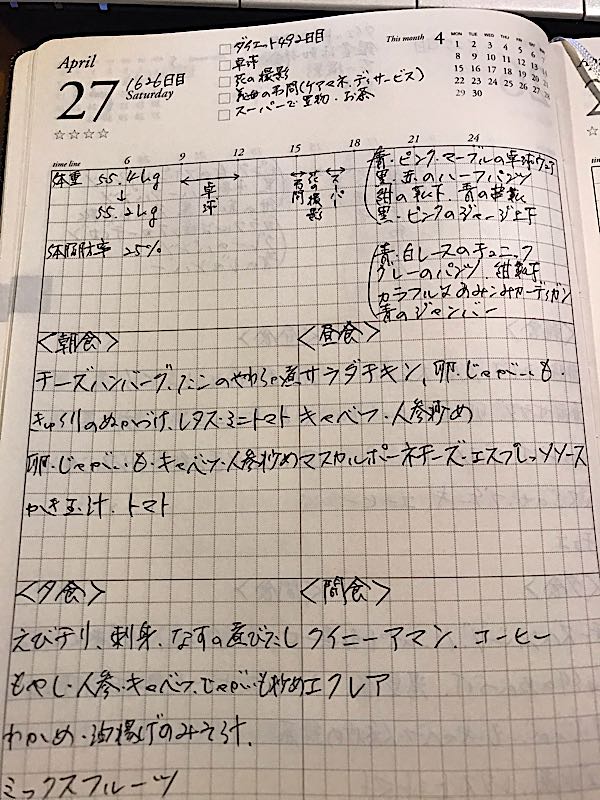 April
27
1626日目
Saturday
☆☆☆☆
ダイエット492日目
卓球
花の撮影
義母の訪問(ケアマネ、デイサービス)
スーパーで買物・お茶
This month 4
MON TUE WED THU FRI SAT SUN
1 2 3 4 5 6 7
8 9 10 11 12 13 14
15 16 17 18 19 20 21
22 23 24 25 26 27 28
29 30
time line 6 9 12 15 18 21 24
体重 55.4kg
↓
55.2kg
体脂肪率 25%
卓球
訪問
花の撮影
スーパー
青・ピンク・マーブルの卓球ウェア
黒・赤のハーフパンツ
紺の靴下、青の
黒・ピンクのジャージ上下
青・白レースのチュニック
グレーのパンツ、紺靴下
カラフルなあみこみカーディガン
青のジャンパー
<朝食>
チーズハンバーグ、たこのやわらか煮
きゅうりのぬかづけ、レタス・ミニトマト
卵・じゃがいも・キャベツ・人参炒め
かき玉汁、トマト
<昼食>
サラダチキン、卵・じゃがいも・
キャベツ・人参炒め
マスカルポーネチーズ・エスプレッソソース
<夕食>
えびチリ、刺身、なすの煮びたし
もやし・人参・キャベツ・じゃがいも炒め
わかめ・油揚げのみそ汁、
ミックスフルーツ
<間食>
クイニーアマン、コーヒー
エクレア